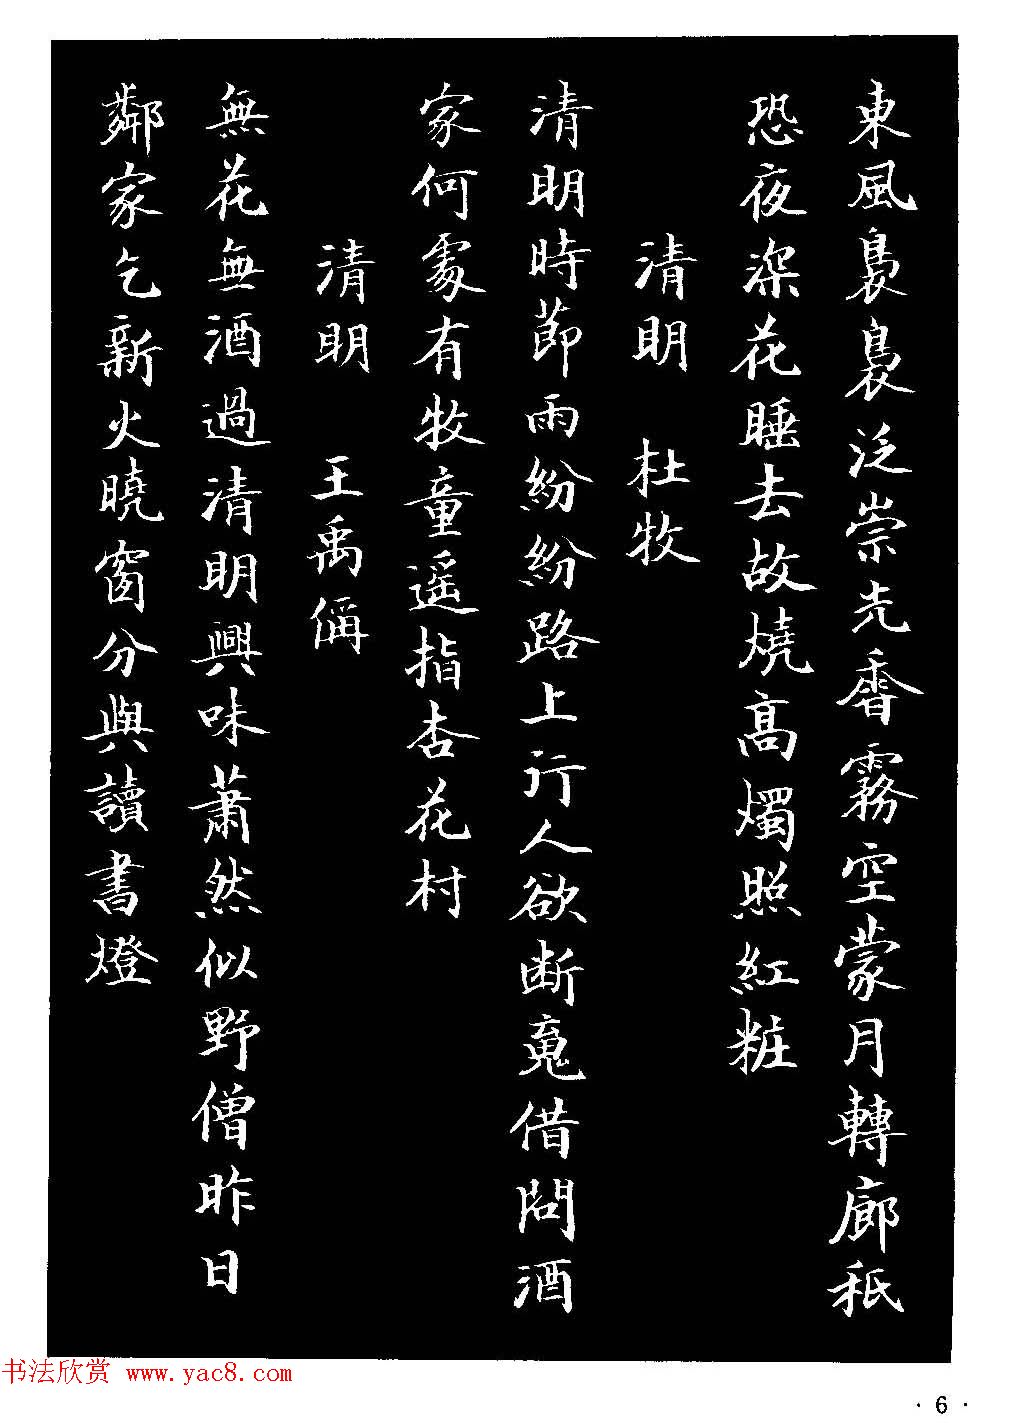 東風裊裊泛崇光香霧空蒙月轉廊祇
恐夜深花睡去故燒高燭照紅粧
清明 杜牧
清明時節雨紛紛路上行人欲断䰟借問酒
家何處有牧童遥指杏花村
清明 王禹偁
無花無酒過清明興味蕭然似野僧昨日
鄰家乞新火曉窗分與讀書燈
书法欣赏 www.yac8.com
· 6 ·